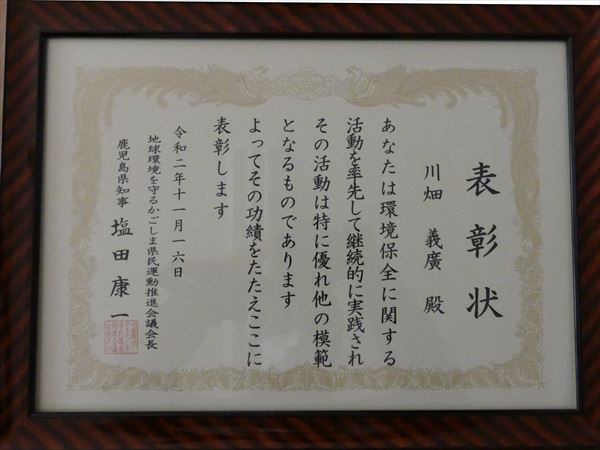 表彰状
川畑 義廣 殿
あなたは環境保全に関する
活動を率先して継続的に実践され
その活動は特に優れ他の模範
となるものであります
よってその功績をたたえここに
表彰します
令和二年十一月一六日
地球環境を守るかごしま県民運動推進会議会長
鹿児島県知事 塩田康一